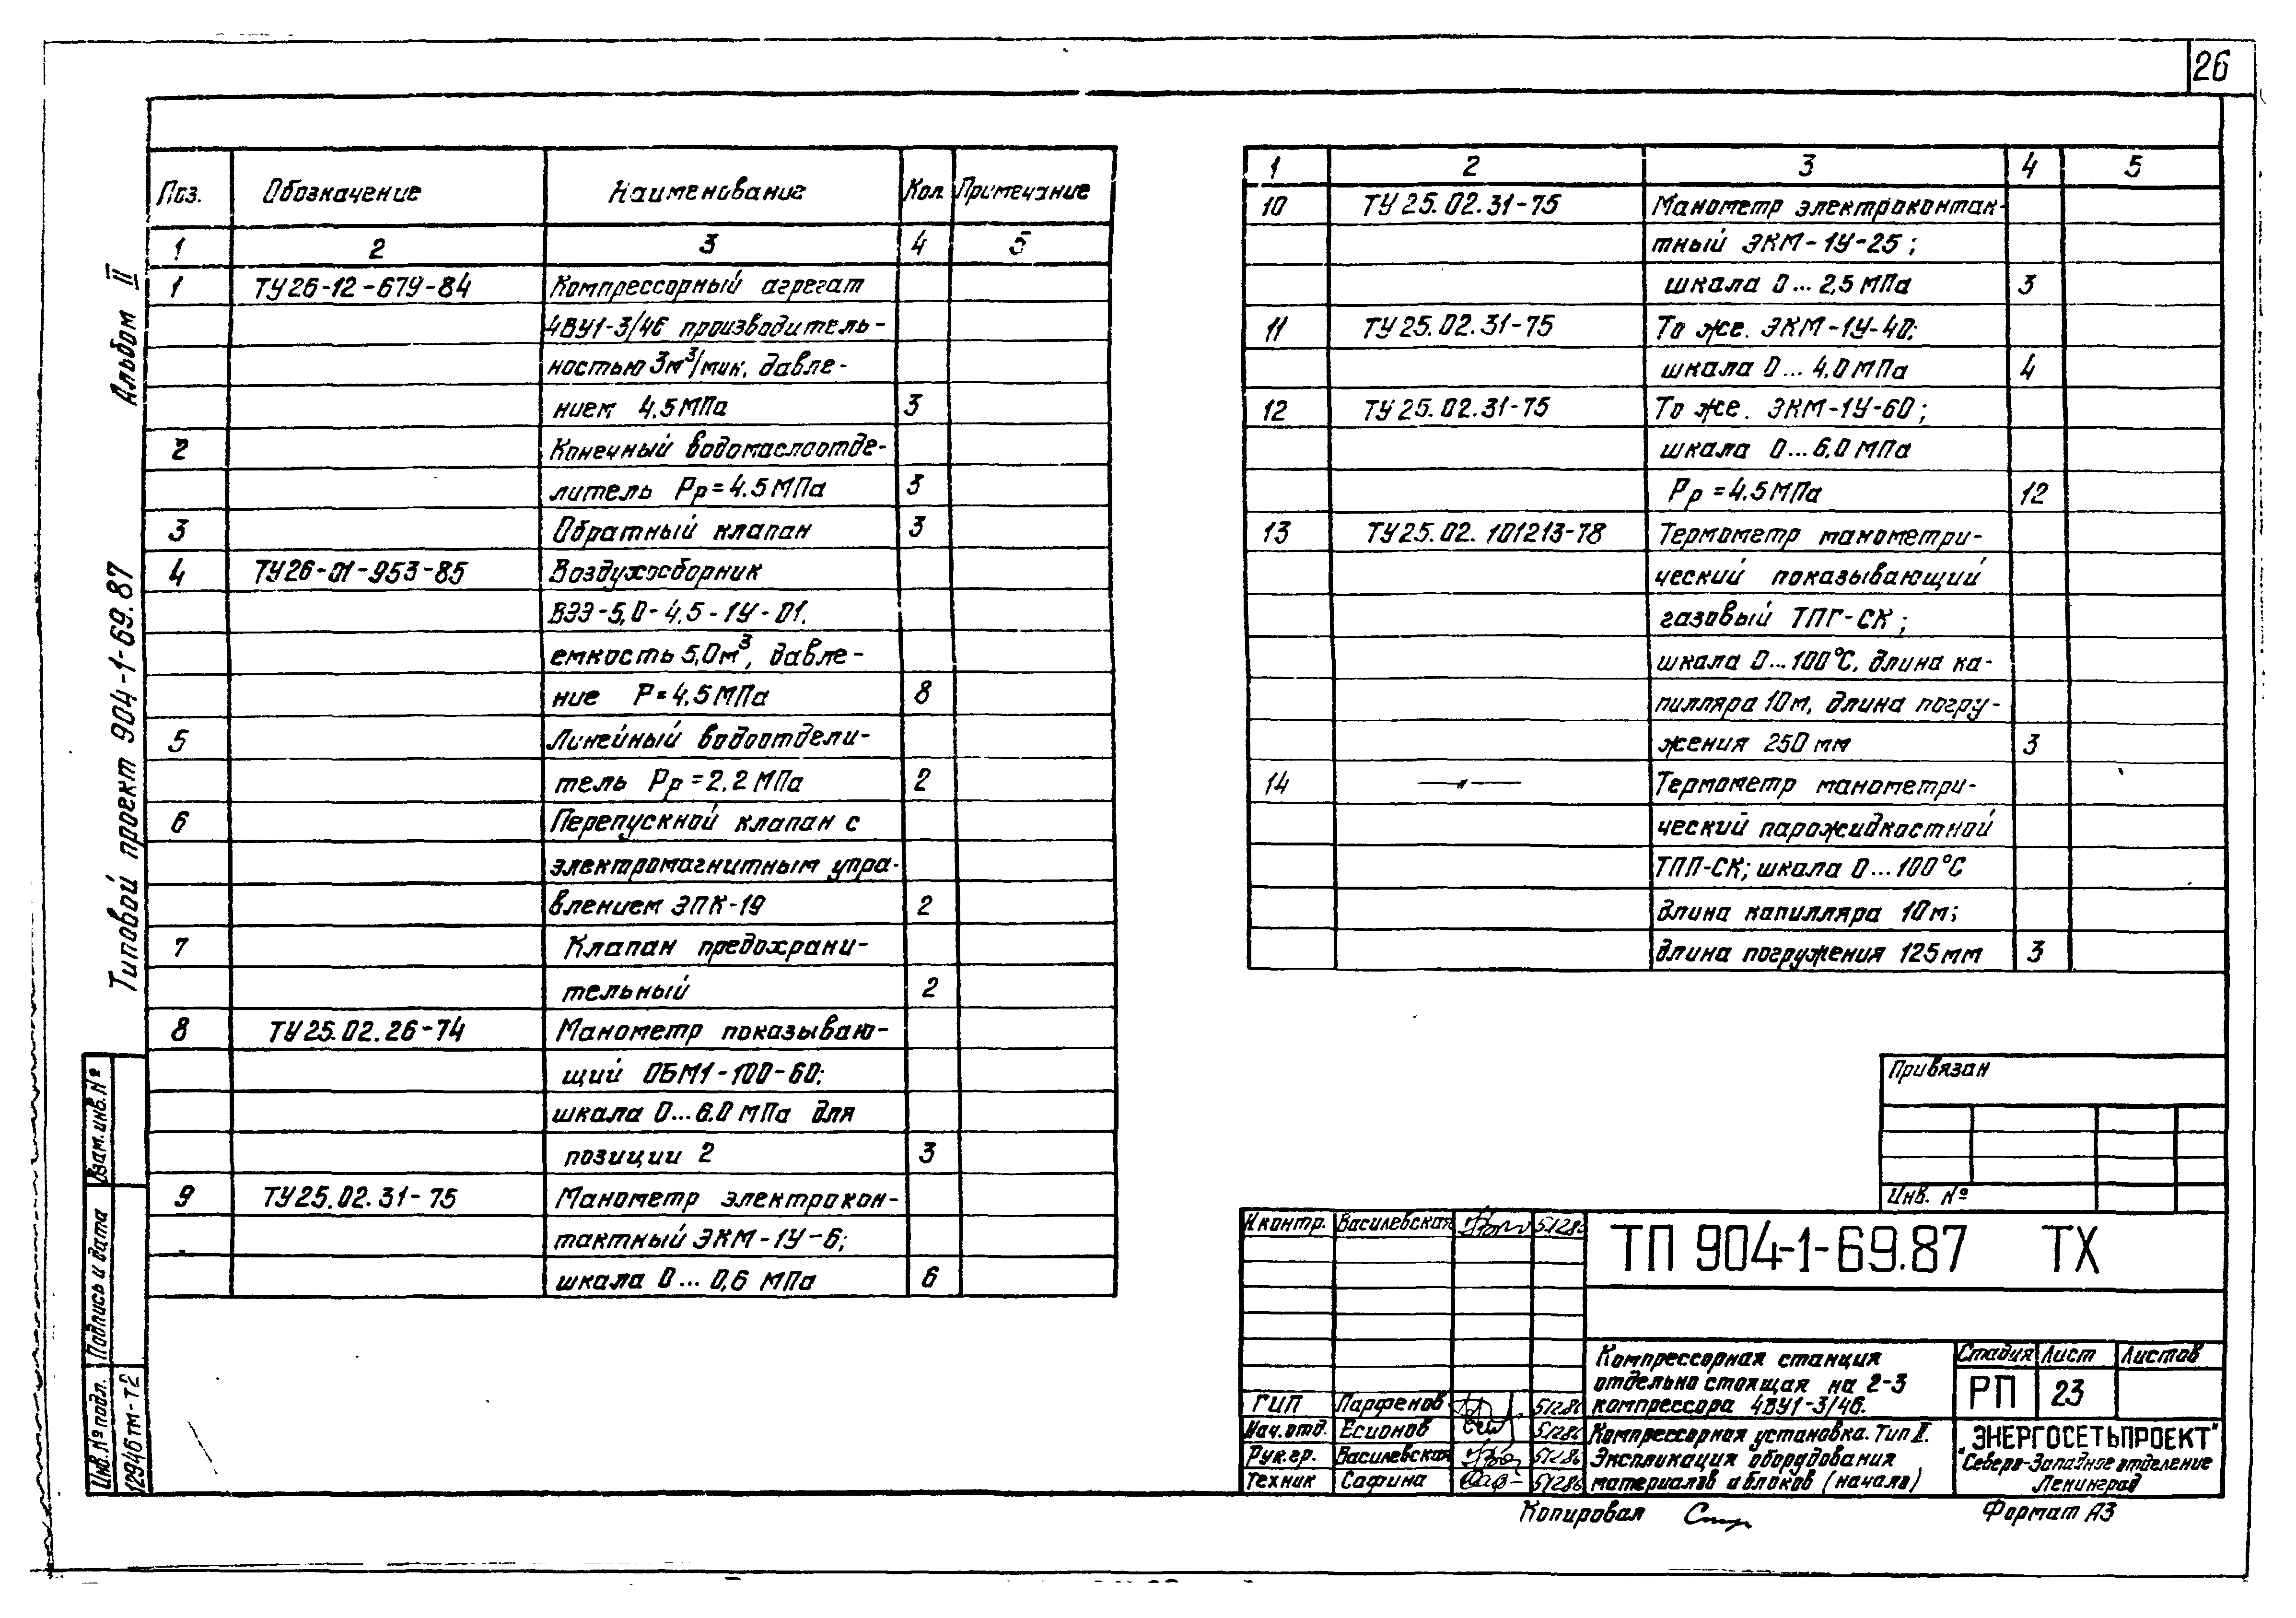 26
Альбом II
Типовой проект 904-1-69.87
Поз. Обозначение Наименование Кол. Примечание
1 2 3 4 5
1 ТУ26-12-679-84 Компрессорный агрегат
4ВУ1-3/46 производитель-
ностью 3м³/мин, давле-
нием 4,5МПа 3
2 Конечный водомаслоотде-
литель Рр=4.5МПа 3
3 Обратный клапан 3
4 ТУ26-01-953-85 Воздухосборник
ВЭЭ-5,0-4,5-1У-01.
емкость 5,0м³, давле-
ние Р=4,5МПа 8
5 Линейный водоотдели-
тель Рр=2.2МПа 2
6 Перепускной клапан с
электромагнитным упра-
влением ЭПК-19 2
7 Клапан предохрани-
тельный 2
8 ТУ25.02.26-74 Манометр показываю-
щий ОБМ1-100-60;
шкала 0...6.0 МПа для
позиции 2 3
9 ТУ25.02.31-75 Манометр электрокон-
тактный ЭКМ-1У-6;
шкала 0...0,6 МПа 6
1 2 3 4 5
10 ТУ25.02.31-75 Манометр электроконтак-
тный ЭКМ-1У-25;
шкала 0...2,5 МПа 3
11 ТУ25.02.31-75 То же. ЭКМ-1У-40;
шкала 0...4,0МПа 4
12 ТУ25.02.31-75 То же. ЭКМ-1У-60;
шкала 0...6,0МПа
Рр=4,5МПа 12
13 ТУ25.02.101213-78 Термометр манометри-
ческий показывающий
газовый ТПГ-СК;
шкала 0...100°С, длина ка-
пилляра 10м, длина погру-
жения 250мм 3
14 —"— Термометр манометри-
ческий парожидкостной
ТПП-СК; шкала 0...100°С
длина капилляра 10м;
длина погружения 125мм 3
Привязан
Инв. №
Н.контр. Василевская 51286
ТП 904-1-69.87 ТХ
Компрессорная станция
отдельно стоящая на 2-3
компрессора 4ВУ1-3/46.
Стадия Лист Листов
РП 23
ГИП Парфенов 51286
Нач.отд. Есионов 51286
Рук.гр. Василевская 51286
Техник Сафина 51286
Компрессорная установка. Тип II.
Экспликация оборудования
материалов и блоков (начало)
"ЭНЕРГОСЕТЬПРОЕКТ"
Северо-Западное отделение
Ленинград
Копировал
Формат А3
Взам.инв.№
Подпись и дата
Инв.№ подл.
12946тм-т2